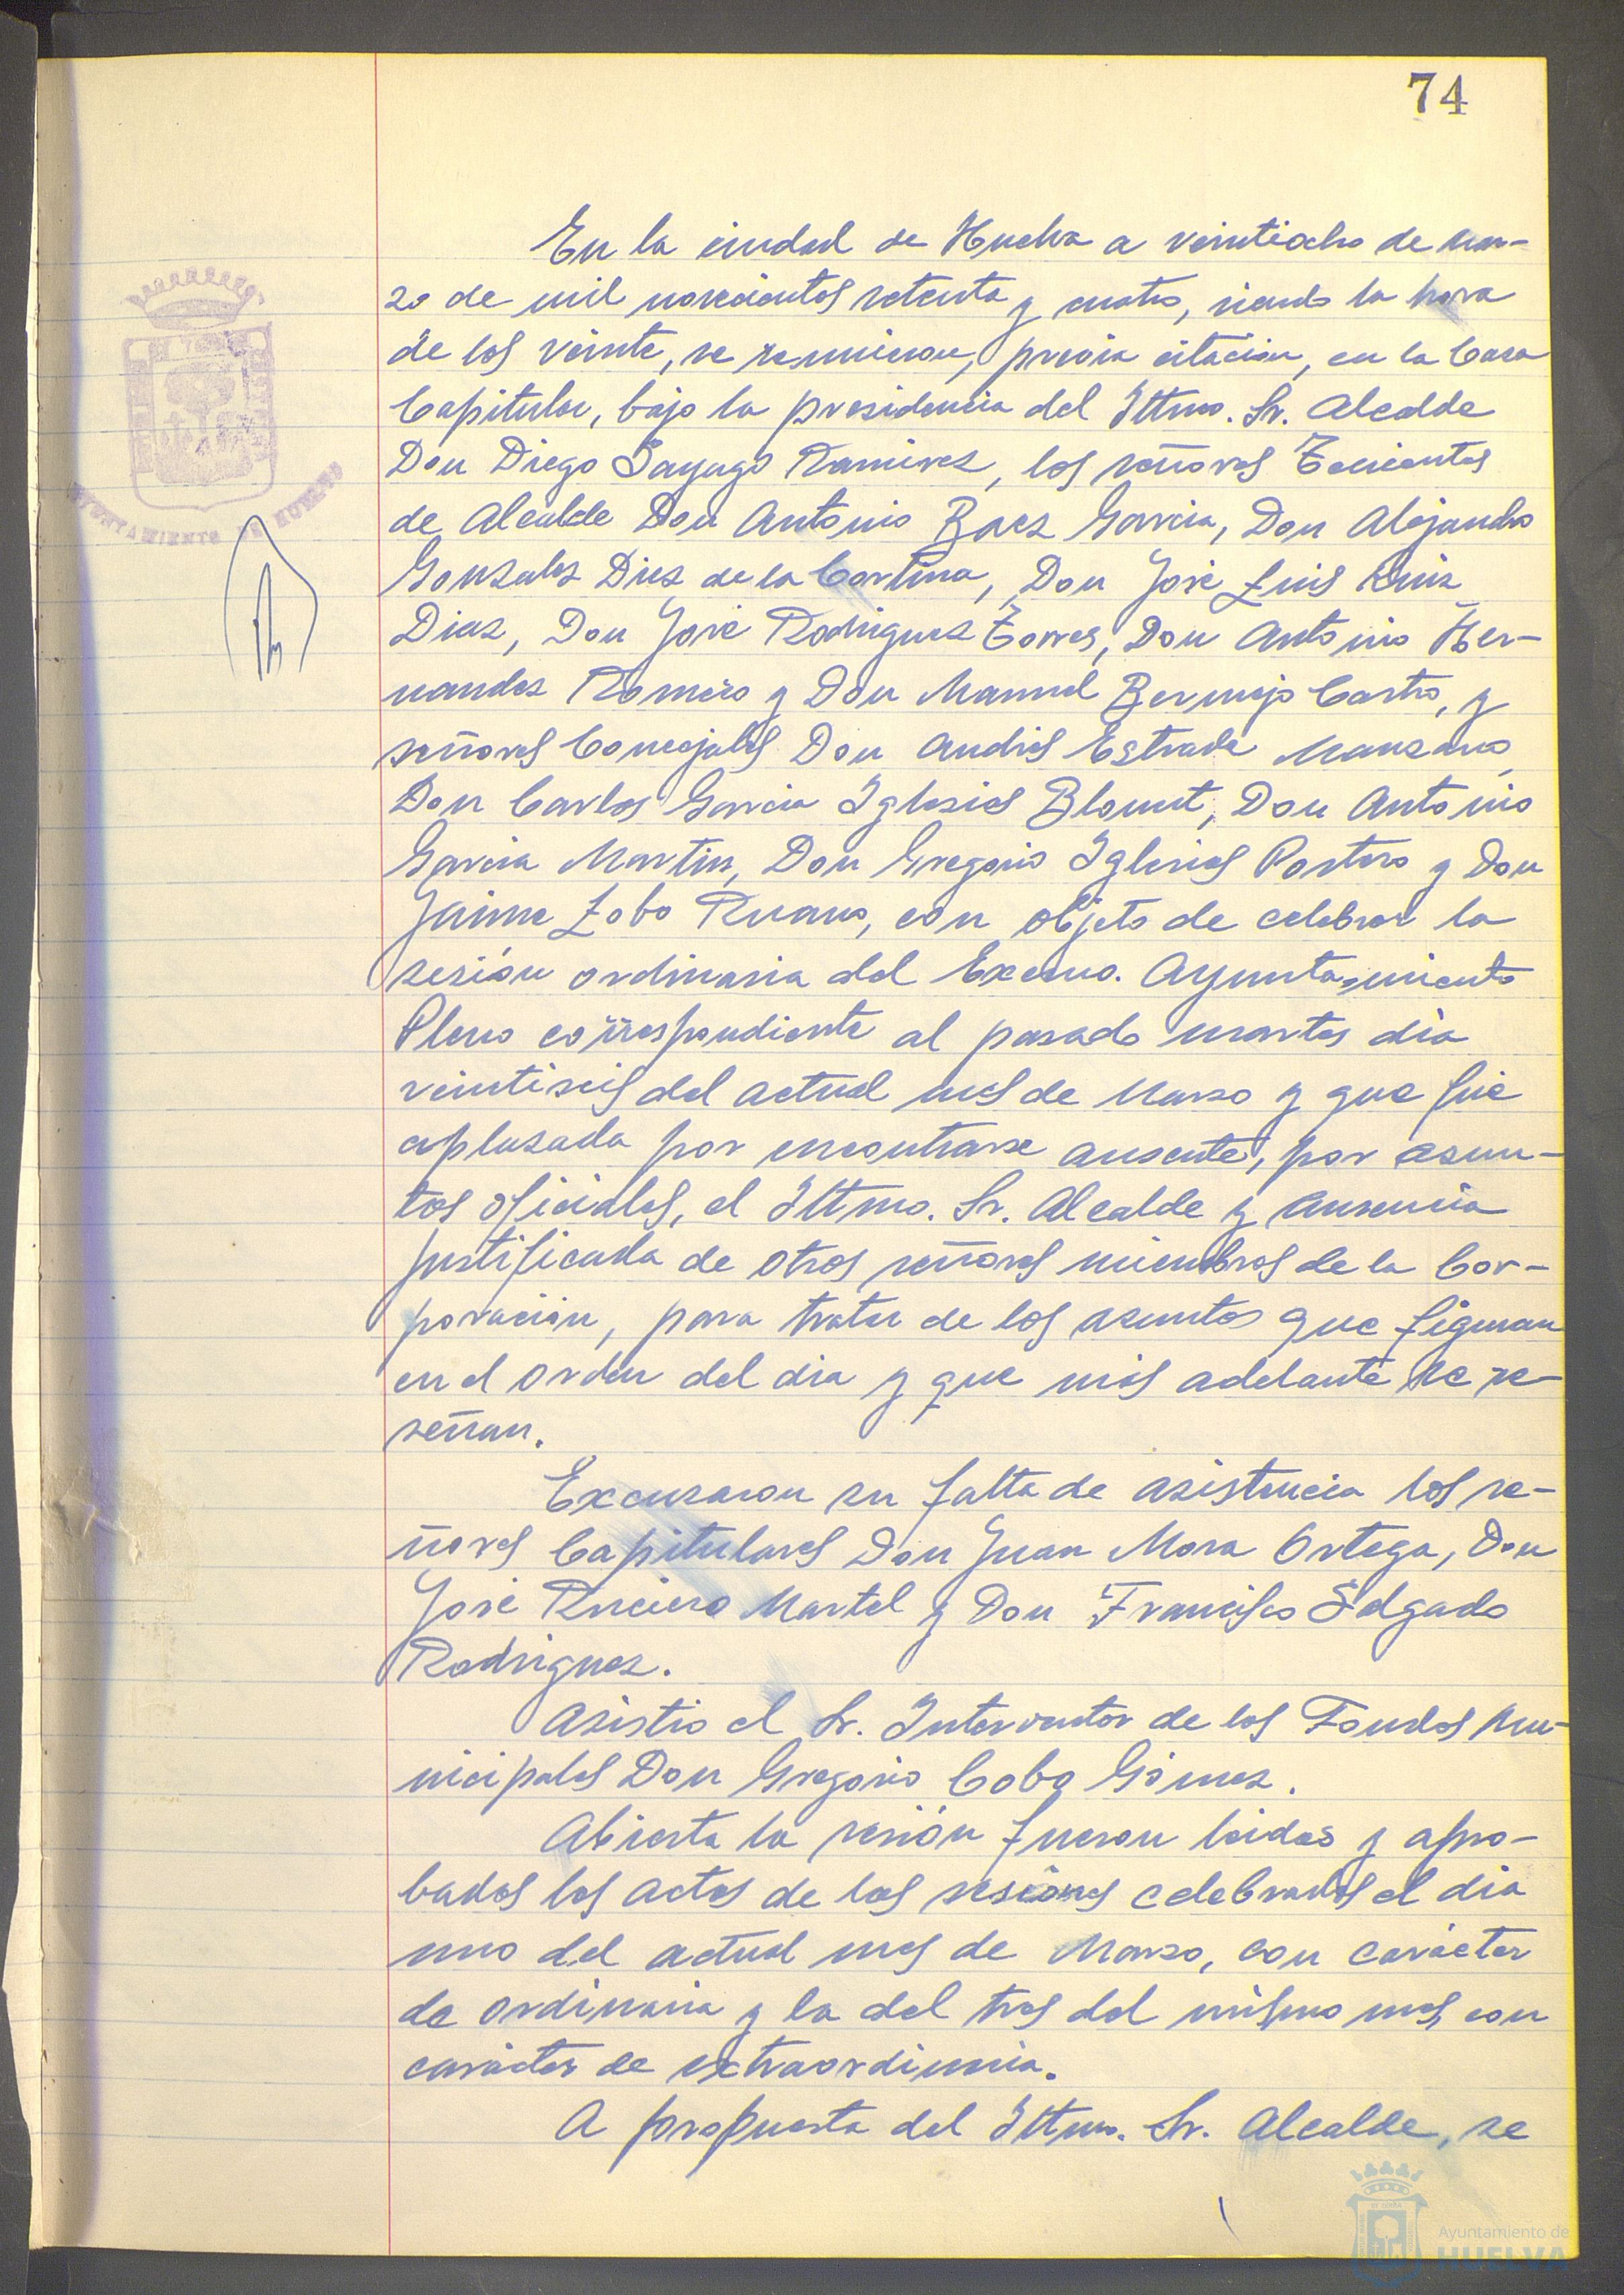 74
En la ciudad de Huelva a veintiocho de mar-
zo de mil novecientos setenta y cuatro, siendo la hora
de las veinte, se reunieron, previa citación, en la Casa
Capitular, bajo la presidencia del Iltmo. Sr. Alcalde
Don Diego Sayago Ramirez, los señores Tenientes
de Alcalde Don Antonio Baez Garcia, Don Alejandro
Gonzalez Diez de la Cortina, Don José Luis Ruiz
Diaz, Don José Rodriguez Torres, Don Antonio Her-
nandez Romero y Don Manuel Bermejo Castro, y
señores Concejales Don Andrés Estrade Manzano,
Don Carlos Garcia Iglesias Blount, Don Antonio
Garcia Martin, Don Gregorio Iglesias Portero y Don
Jaime Lobo Ruano, con objeto de celebrar la
sesión ordinaria del Excmo. Ayuntamiento
Pleno correspondiente al pasado martes dia
veintiseis del actual mes de Marzo y que fué
aplazada por encontrarse ausente, por asun-
tos oficiales, el Iltmo. Sr. Alcalde y ausencia
justificada de otros señores miembros de la Cor-
poración, para tratar de los asuntos que figuran
en el orden del dia y que más adelante se re-
señan.
Excusaron su falta de asistencia los se-
ñores Capitulares Don Juan Mora Ortega, Don
José Martel y Don Francisco Salgado
Rodriguez.
Asistió el Sr. Interventor de los Fondos Mu-
nicipales Don Gregorio Cobo Gómez.
Abierta la sesión fueron leidas y apro-
badas las actas de las sesiones celebradas el dia
uno del actual mes de Marzo, con carácter
de ordinaria y la del tres del mismo mes, con
carácter de extraordinaria.
A propuesta del Iltmo. Sr. Alcalde, se
AYUNTAMIENTO DE HUELVA
Ayuntamiento de
HUELVA